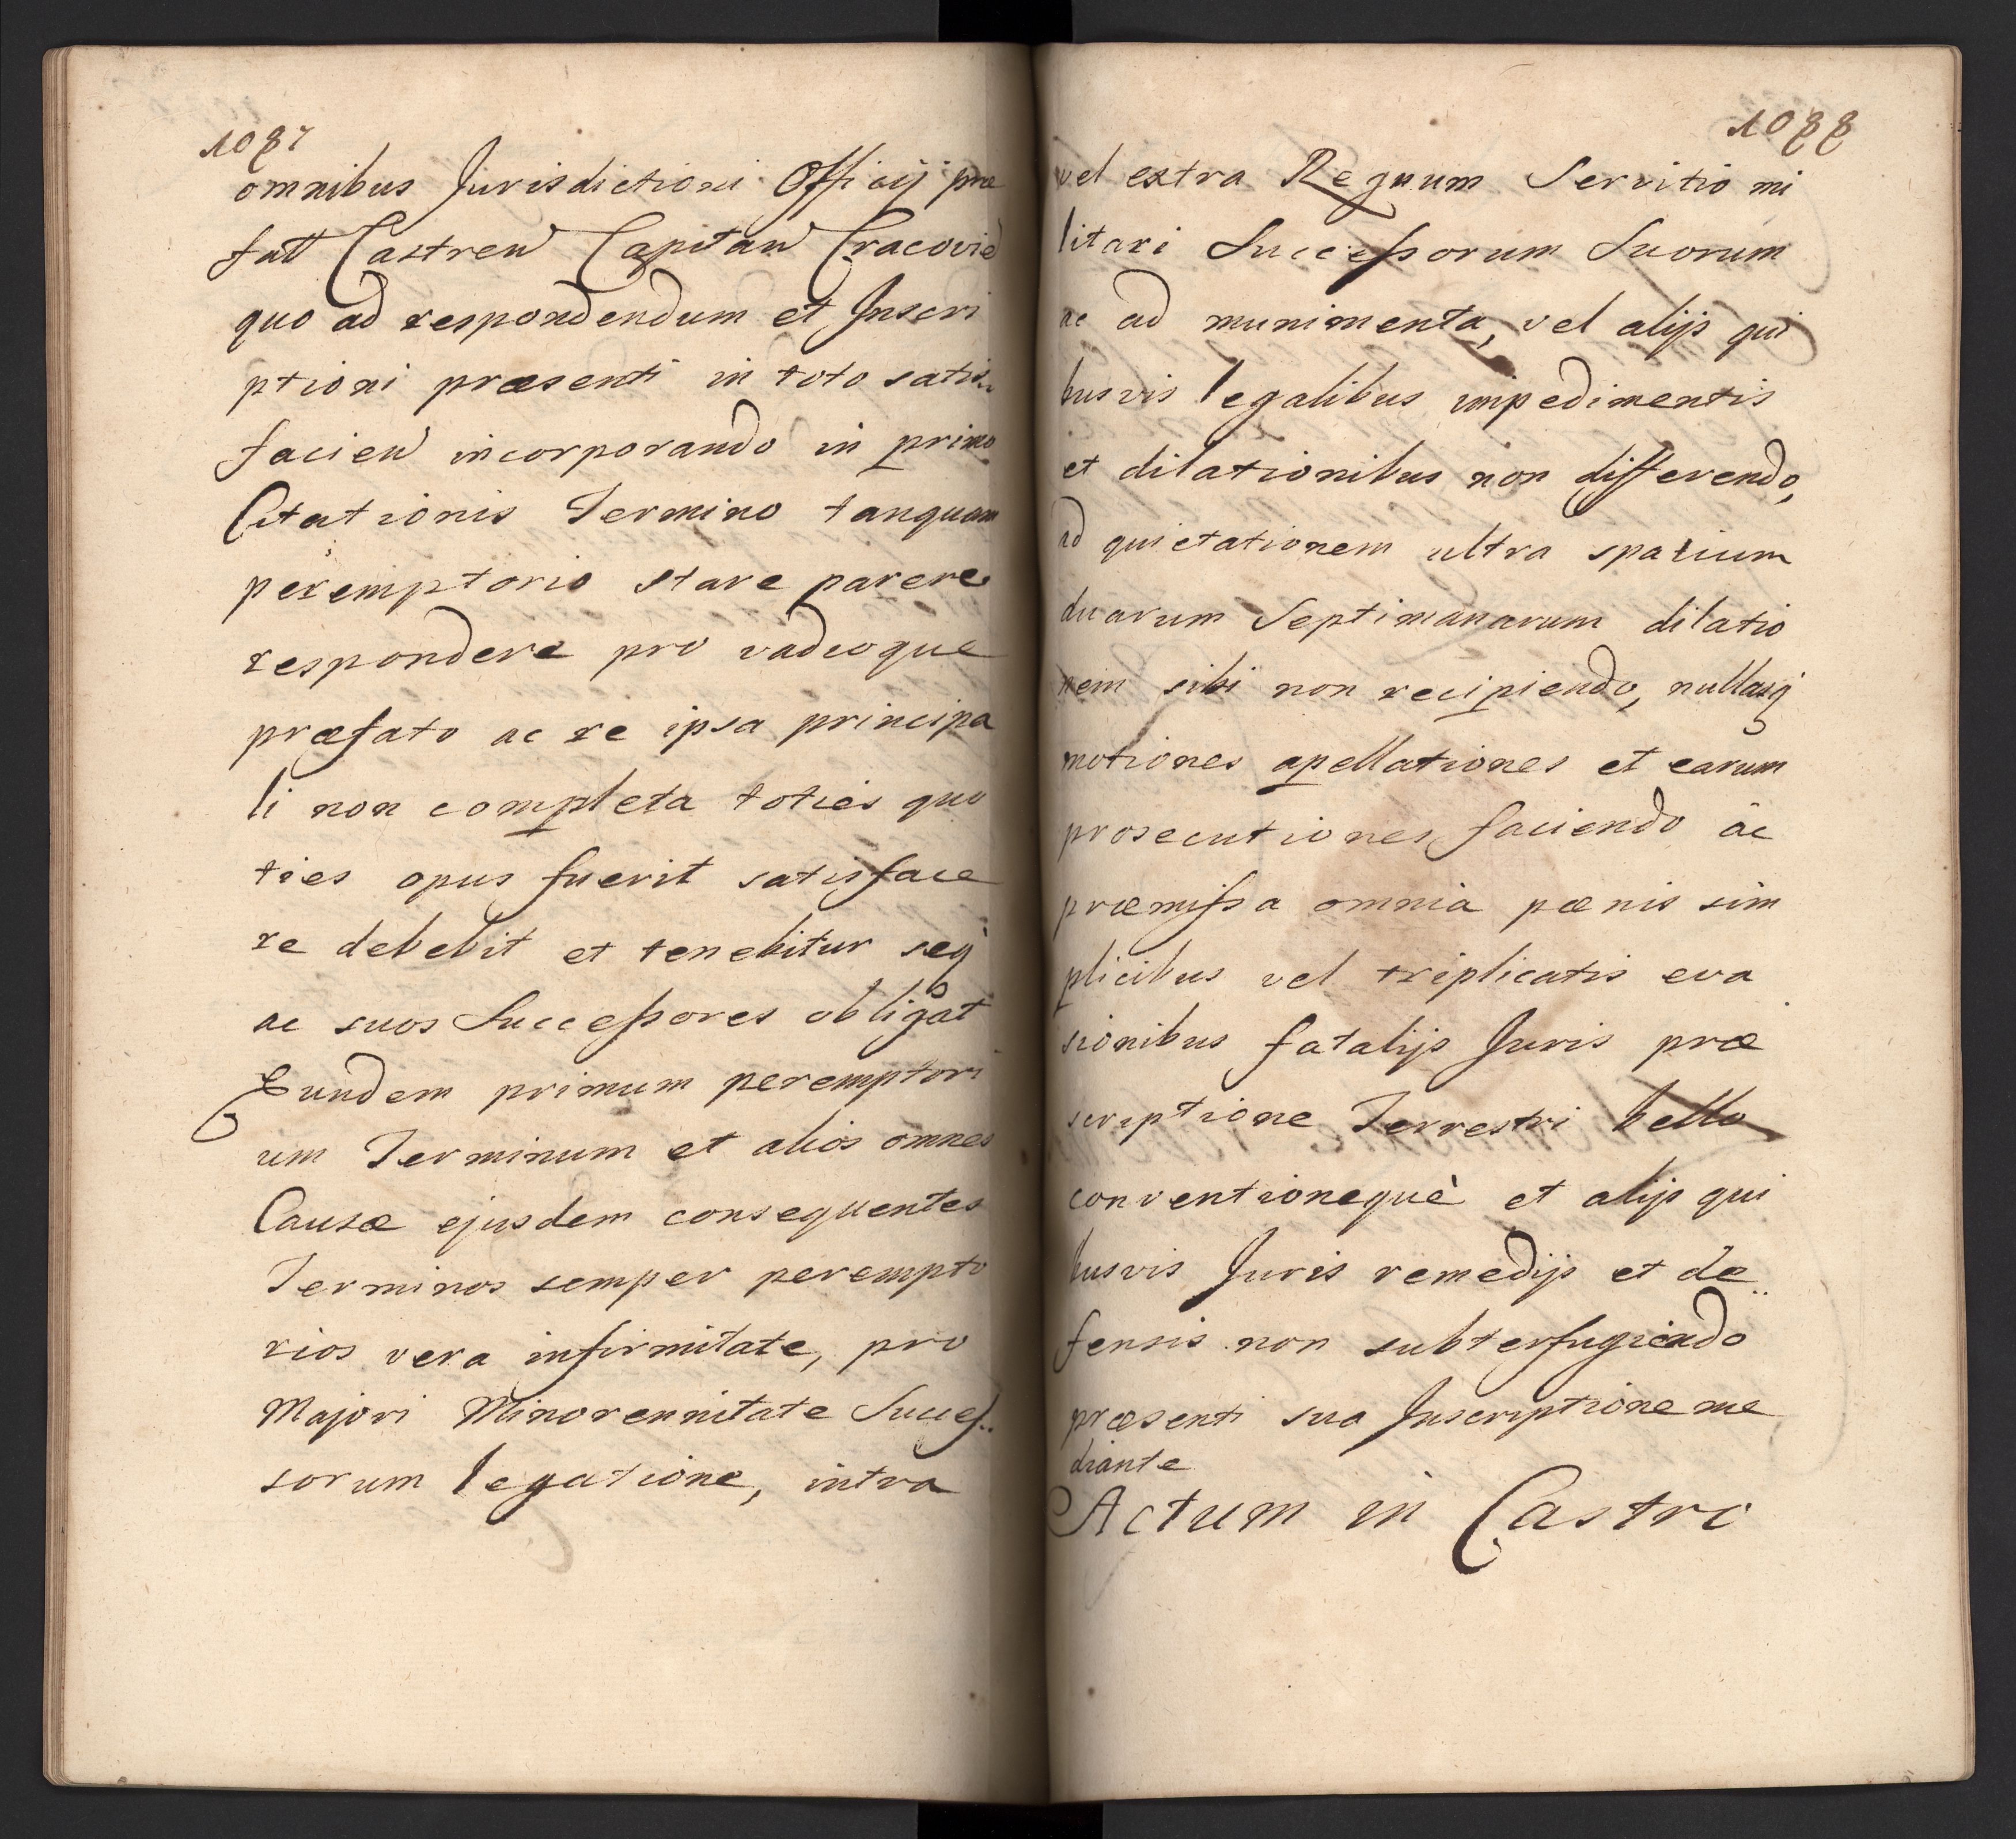 1087
omnibus Jurisdictioni Officij præ
fatt Castren Capitan Cracovien
quo ad respondendum et Inscri
ptioni præsenti in toto satis
facien incorporando in primo
Citationis Termino tanquam
peremptorio stare parere
respondere pro vadioque
præfato ac re ipsa principa
li non completa toties quo
ties opus fuerit satisface
re debebit et tenebitur seq
ac suos Successores obligat
Eundem primum peremptori
um Terminum et alios omnes
Causæ ejusdem consequentes
Terminos semper perempto
rios vera infirmitate, pro
Majori Minorennitate Succes
sorum legatione, intra
1088
vel extra Regnum Servitio mi
litari Successorum Suorum
ac ad munimenta, vel alijs qui
busvis legalibus impedimentis
et dilationibus non differendo,
ad quietationem ultra spatium
duarum Septimanarum dilatio
nem sibi non recipiendo, nullasq
motiones apellationes et earum
prosecutiones faciendo ac
præmissa omnia pænis sim
plicibus vel triplicatis eva
sionibus fatalijs Juris præ
scriptione Terrestri bello
conventionequè et alijs qui
busvis Juris remedijs et de
fensis non subterfugiendo
præsenti sua Inscriptione me
diante
Actum in Castro